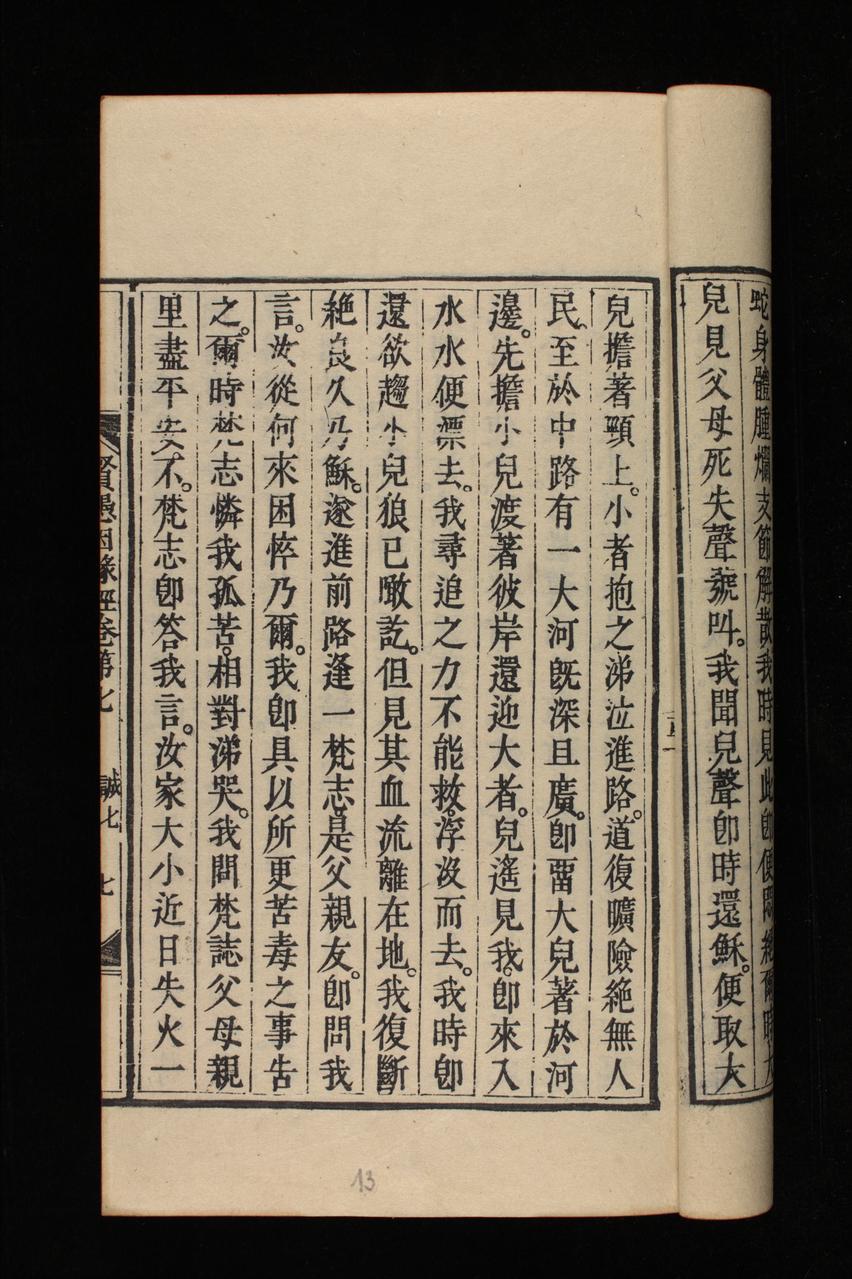 蛇身體腫爛支節解散我時見此卽便悶絕爾時大
兒見父母死失聲號叫。我聞兒聲卽時還穌。便取大
兒擔著頸上。小者抱之涕泣進路。道復曠險絕無人
民、至於中路有一大河旣深且廣。卽畱大兒著於河
邊。先擔小兒渡著彼岸還迎大者。兒遙見我。卽來入
水水便漂去。我尋追之力不能救。浮沒而去。我時卽
還欲趨小兒狼已噉訖。但見其血流離在地。我復斷
絕良久乃穌。遂進前路逢一梵志。是父親友。卽問我
言。汝從何來困悴乃爾。我卽具以所更苦毒之事告
之。爾時梵志憐我孤苦。相對涕哭。我問梵誌父母親
里盡平安不。梵志卽答我言。汝家大小近日失火一
賢愚因緣經卷第七 誠七 七
13